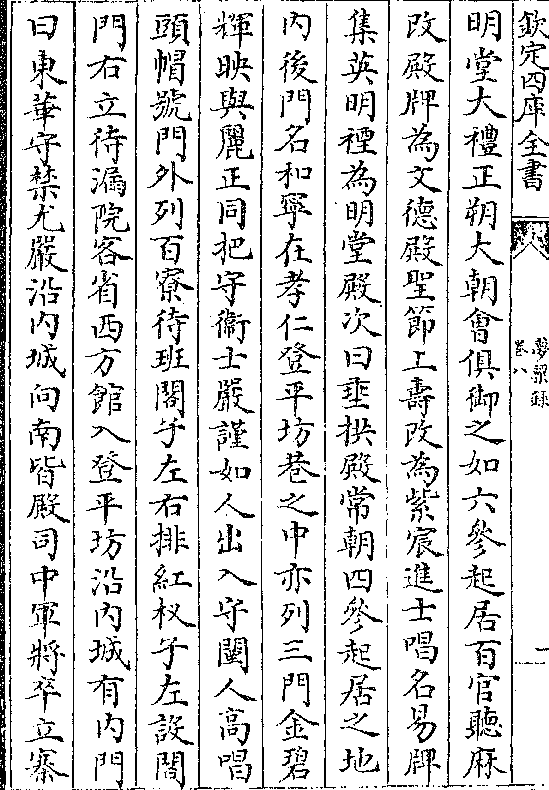 欽定四庫全書
夢粱錄
卷八
一
明堂大禮正朔大朝會俱御之如六參起居百官聽麻
改殿牌為文德殿聖節上壽改為紫宸進士唱名易牌
集英明禋為明堂殿次曰垂拱殿常朝四參起居之地
內後門名和寧在孝仁登平坊巷之中亦列三門金碧
輝映與麗正同把守衞士嚴謹如人出入守闉人高唱
頭帽號門外列百寮待班閣子左右排紅杈子左設閤
門右立待漏院客省四方館入登平坊沿內城有內門
曰東華守禁尤嚴沿內城向南皆殿司中軍將卒立寨